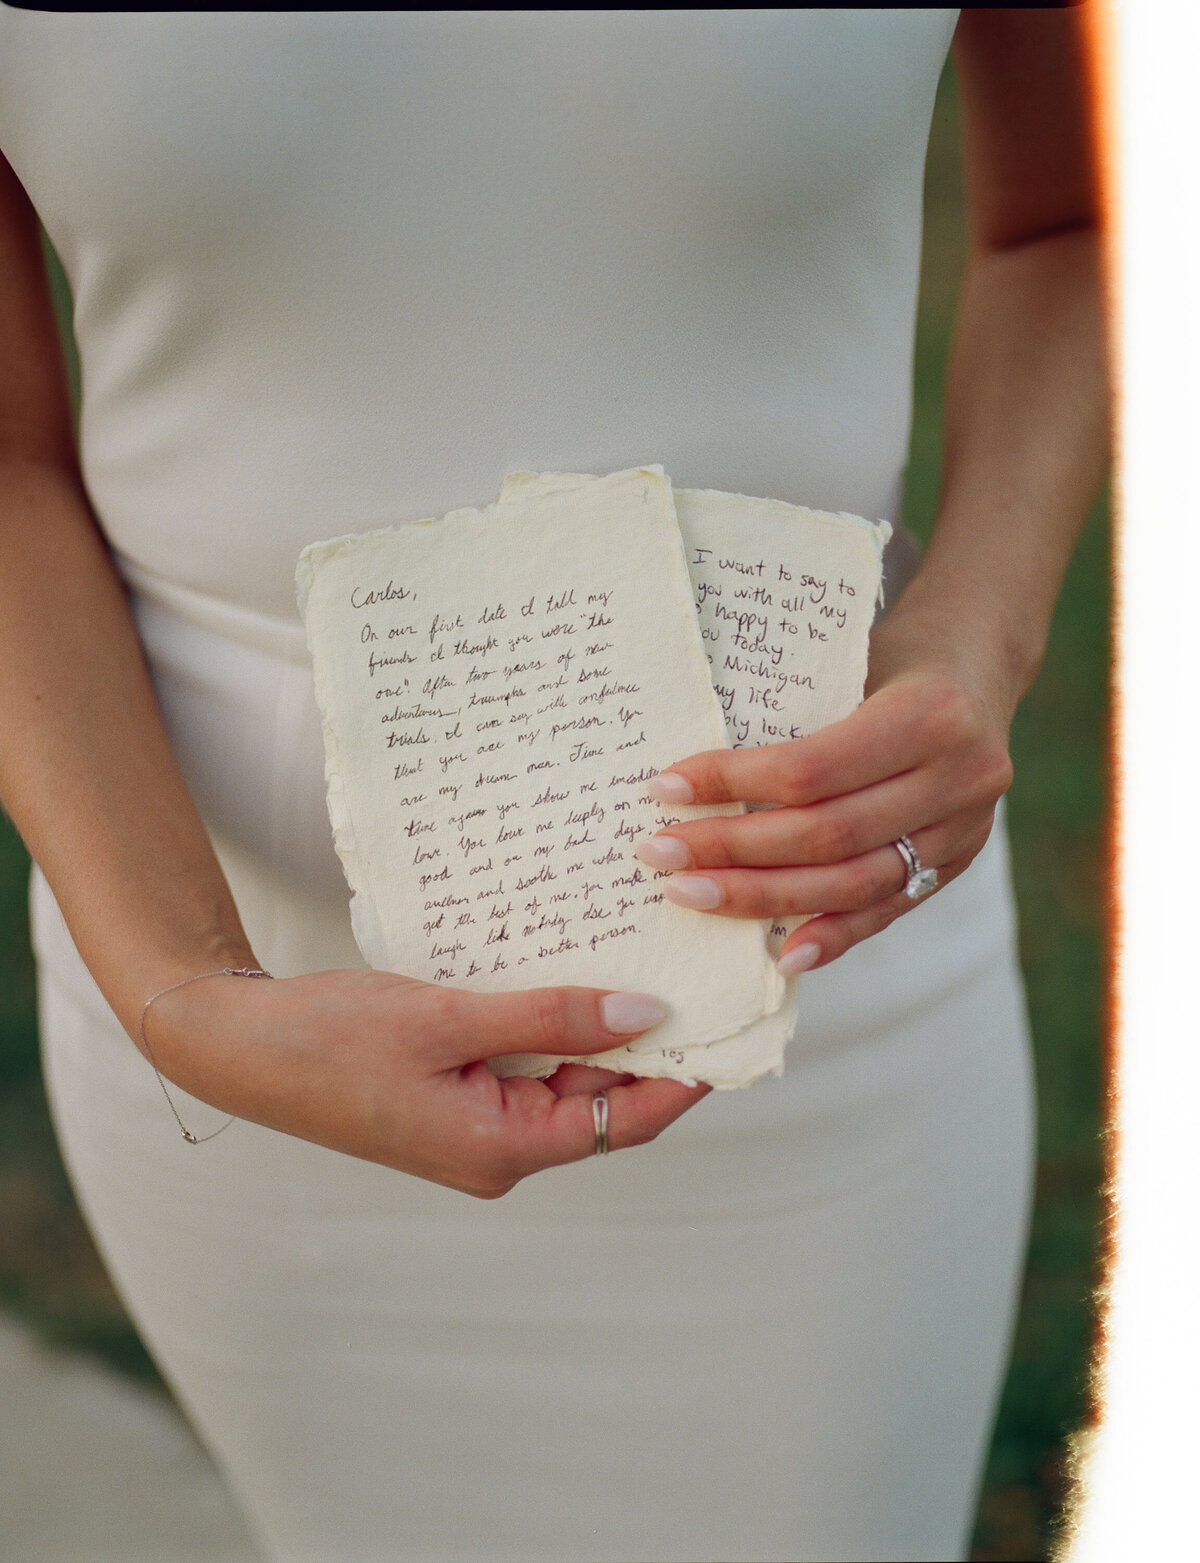 Carlos,
On our first date I told my
friends I thought you were "the
one". After two years of new
adventures, triumphs and some
trials, I can say with confidence
that you are my person. You
are my dream man. Time and
time again you show me
love. You love me deeply on my
good and on my bad days. You
anchor and soothe me when
get the best of me. You make me
laugh like nobody else. You
me to be a better person.
I want to say to
you with all my
happy to be
you today.
Michigan
my life
bly lucky
los